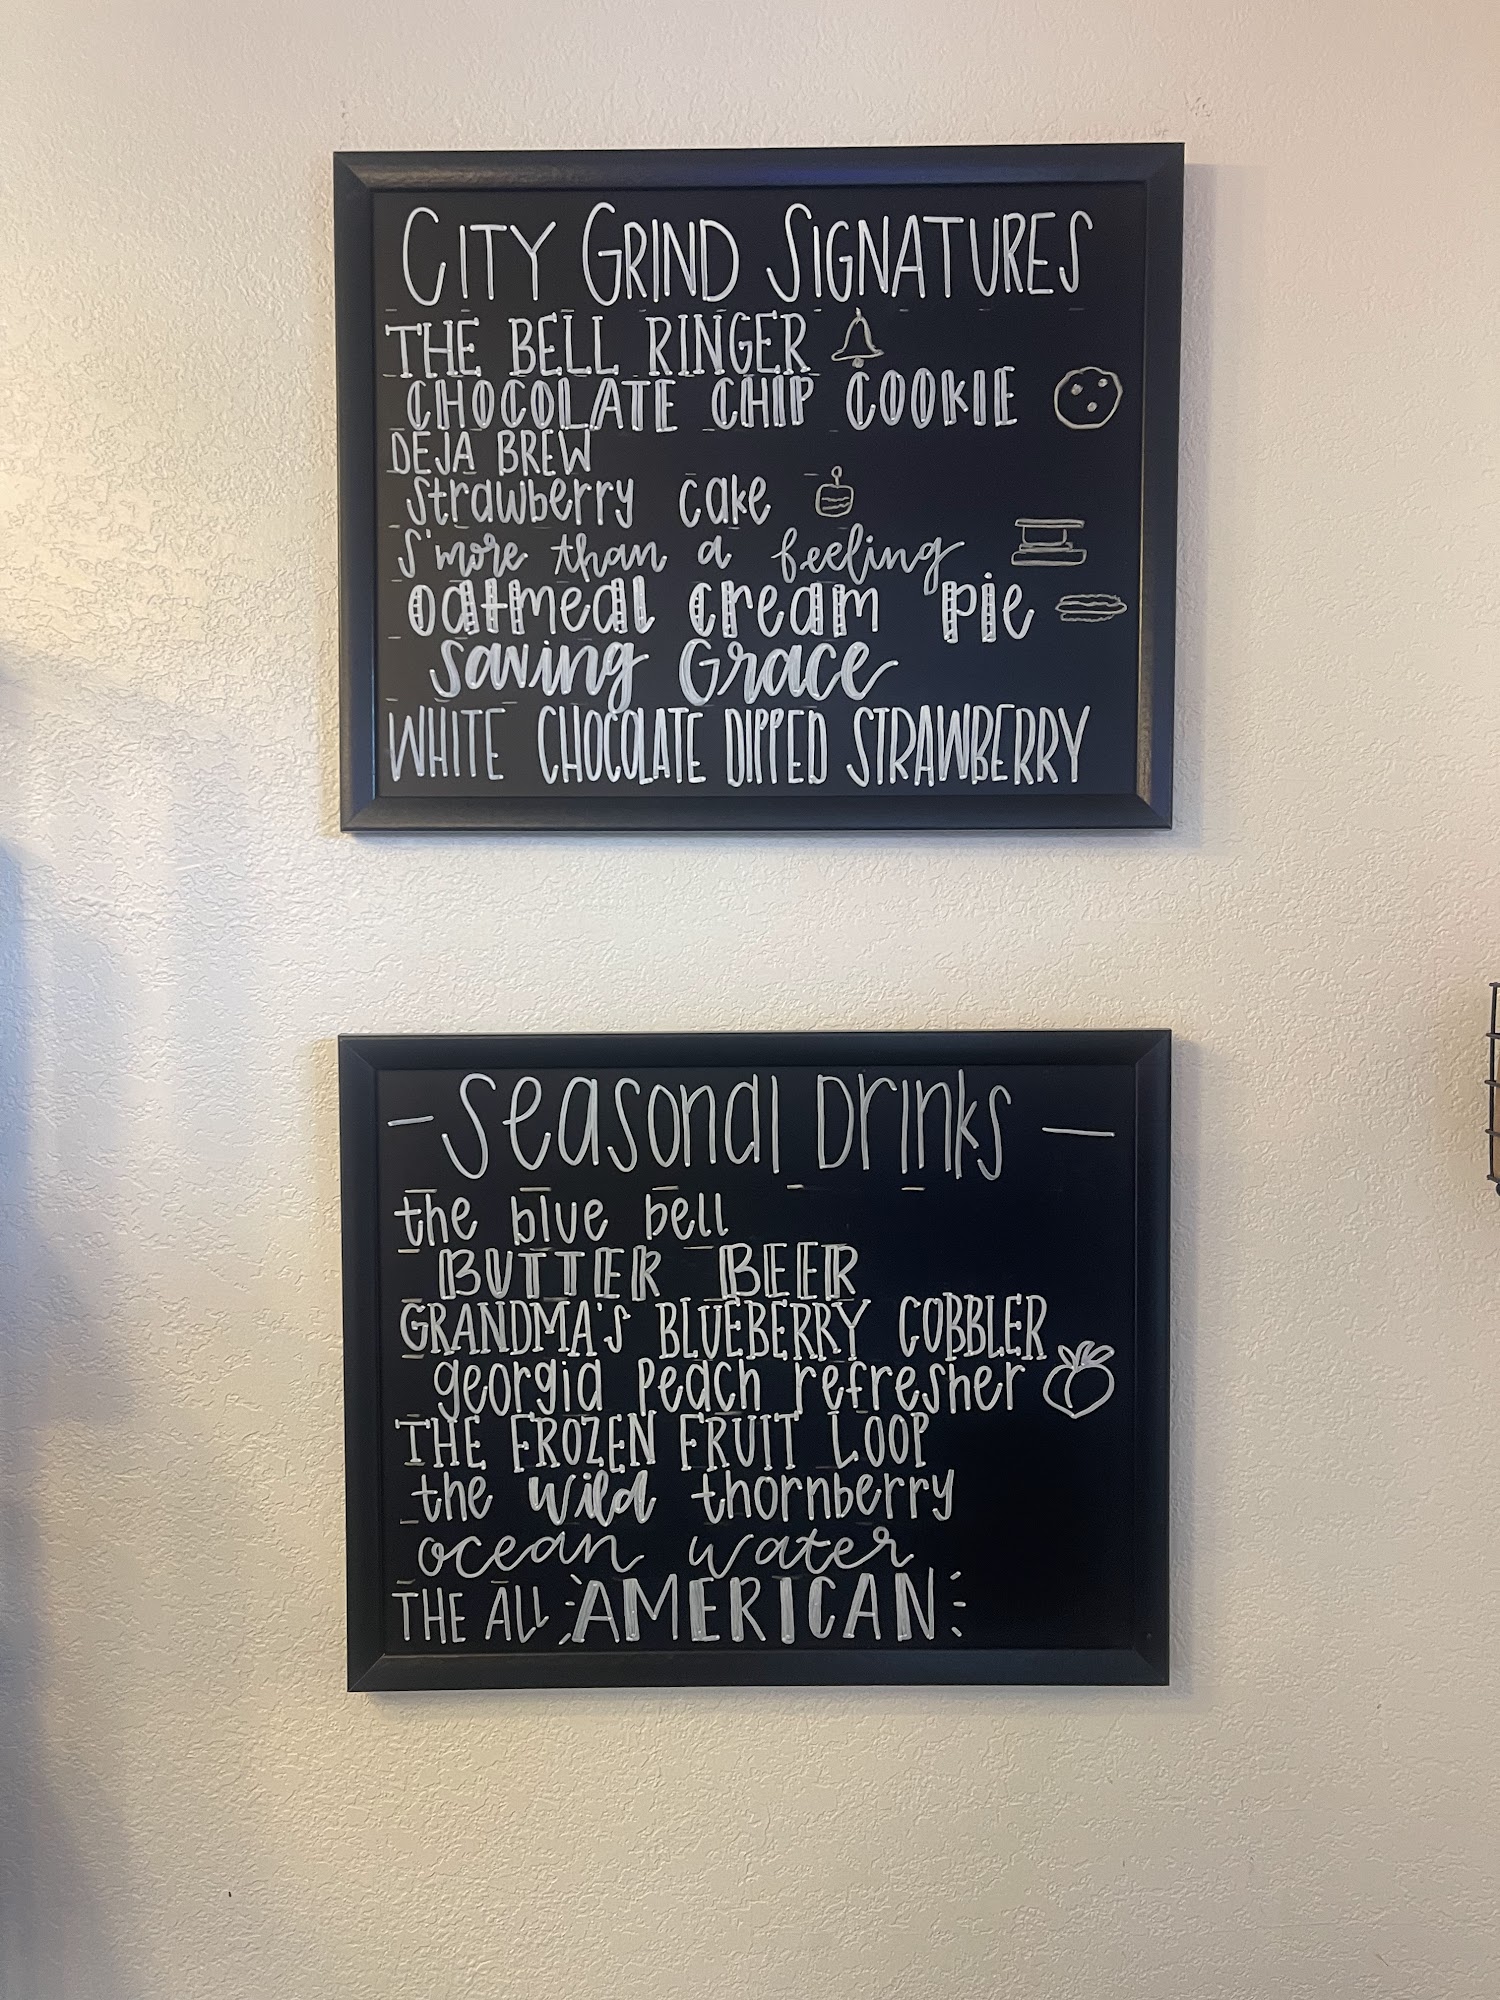 CITY GRIND SIGNATURES
THE BELL RINGER
CHOCOLATE CHIP COOKIE
DEJA BREW
strawberry cake
S'more than a feeling
oatmeal cream pie
Saving Grace
WHITE CHOCOLATE DIPPED STRAWBERRY
- Seasonal Drinks -
the blue bell
BUTTER BEER
GRANDMA'S BLUEBERRY COBBLER
georgia peach refresher
THE FROZEN FRUIT LOOP
the wild thornberry
ocean water
THE ALL AMERICAN